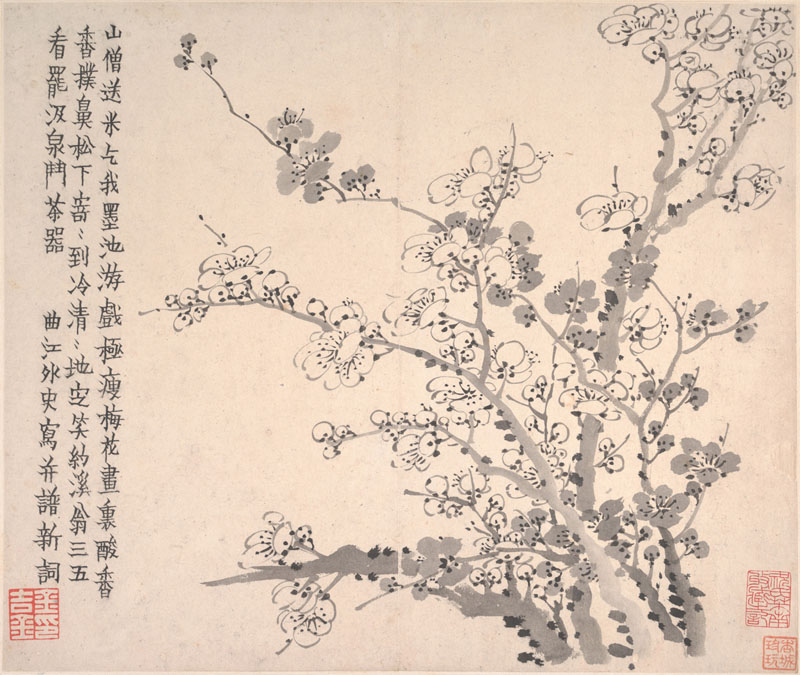 山僧送米乞我墨池游戲極瘦梅花畫裏酸香
香撲鼻松下寄〻到冷清〻地定笑約溪翁三五
看罷汲泉鬥茶器　曲江外史寫并譜新詞
金印吉金